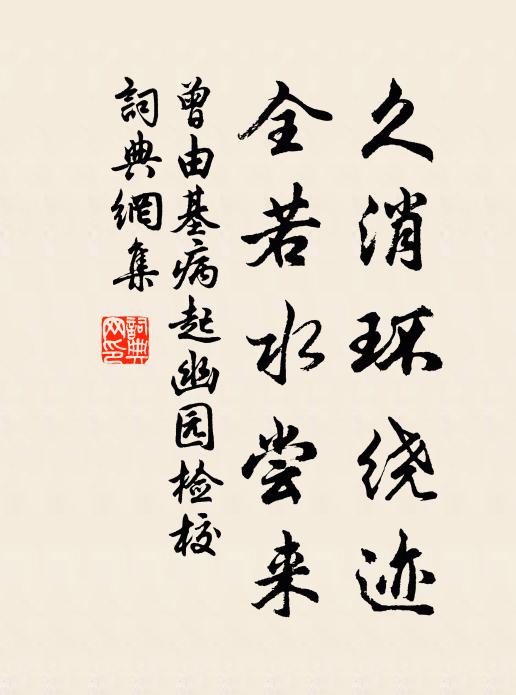 久消环绕迹
全若水尝来
曾由基病起幽园检校
詞典網集
詞典网印